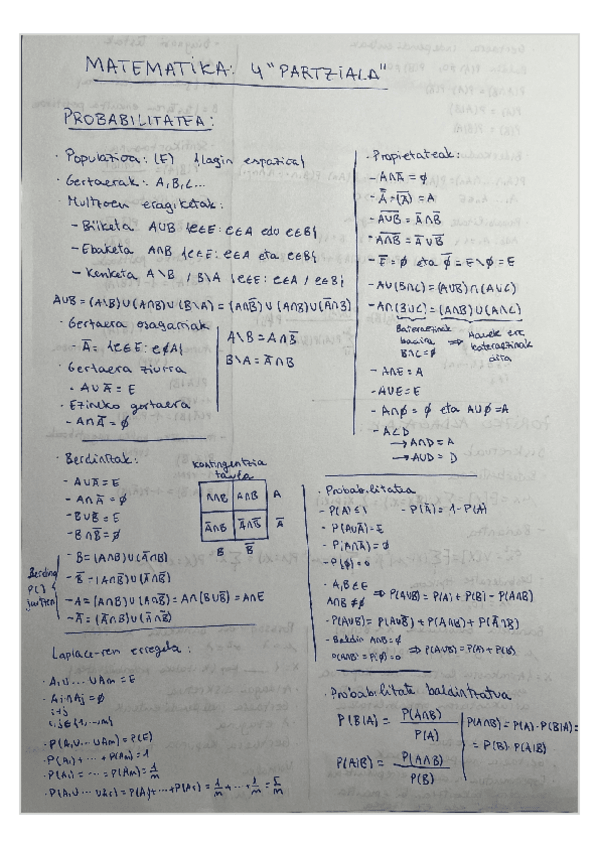 MATEMATIKA: 4 "PARTZIALA"
PROBABILITATEA:
· Populazioa: (E) {lagin espazioa}
· Gertaerak: A, B, C...
· Multzoen eragiketak:
- Bilketa A∪B {e∈E: e∈A edo e∈B}
- Ebaketa A∩B {e∈E: e∈A eta e∈B}
- Kenketa A\B / B\A {e∈E: e∈A / e∈B}
A∪B = (A\B)∪(A∩B)∪(B\A) = (A∩B̅)∪(A∩B)∪(A̅∩B)
· Gertaera osagarriak
- A̅ = {e∈E: e∉A}
· Gertaera ziurra
- A∪A̅ = E
· Ezineko gertaera
- A∩A̅ = ∅
A\B = A∩B̅
B\A = A̅∩B
· Propietateak:
- A∩A̅ = ∅
- A̿ = (A̿) = A
- A̅∪̅B̅ = A̅∩B̅
- A̅∩̅B̅ = A̅∪B̅
- E̅ = ∅ eta ∅̅ = E\∅ = E
- A∪(B∩C) = (A∪B)∩(A∪C)
- A∩(B∪C) = (A∩B)∪(A∩C)
Bateraezinak badira B∩C=∅ ⇒ Hauek ere bateraezinak dira
- A∩E = A
- A∪E = E
- A∩∅ = ∅ eta A∪∅ = A
- A⊂D
→ A∩D = A
→ A∪D = D
· Berdintzak:
- A∪A̅ = E
- A∩A̅ = ∅
- B∪B̅ = E
- B∩B̅ = ∅
- B = (A∩B)∪(A̅∩B)
- B̅ = (A∩B̅)∪(A̅∩B̅)
- A = (A∩B)∪(A∩B̅) = A∩(B∪B̅) = A∩E
- A̅ = (A̅∩B)∪(A̅∩B̅)
Berdina P( ) jartzen
Kontingentzia taula
A∩B A∩B̅ A
A̅∩B A̅∩B̅ A̅
B B̅
· Probabilitatea
- P(A) ≤ 1 - P(A̅) = 1 - P(A)
- P(A∪A̅) = E
- P(A∩A̅) = ∅
- P(∅) = 0
- A, B ⊂ E
A∩B ≠ ∅ ⇒ P(A∪B) = P(A) + P(B) - P(A∩B)
- P(A∪B) = P(A∩B̅) + P(A∩B) + P(A̅∩B)
- Baldin A∩B = ∅
P(A∩B) = P(∅) = 0 ⇒ P(A∪B) = P(A) + P(B)
Laplace-ren erregela:
· A₁∪...∪Am = E
· Ai∩Aj = ∅
i≠j
i,j∈{1,...,m}
· P(A₁∪...∪Am) = P(E)
· P(A₁) + ... + P(Am) = 1
· P(A₁) = ... = P(Am) = 1/m
· P(A₁∪...∪Ar) = P(A₁) + ... + P(Ar) = 1/m + ... + 1/m = r/m
· Probabilitate baldintzatua
P(B|A) = P(A∩B) / P(A)
P(A|B) = P(A∩B) / P(B)
P(A∩B) = P(A)·P(B|A) =
= P(B)·P(A|B)